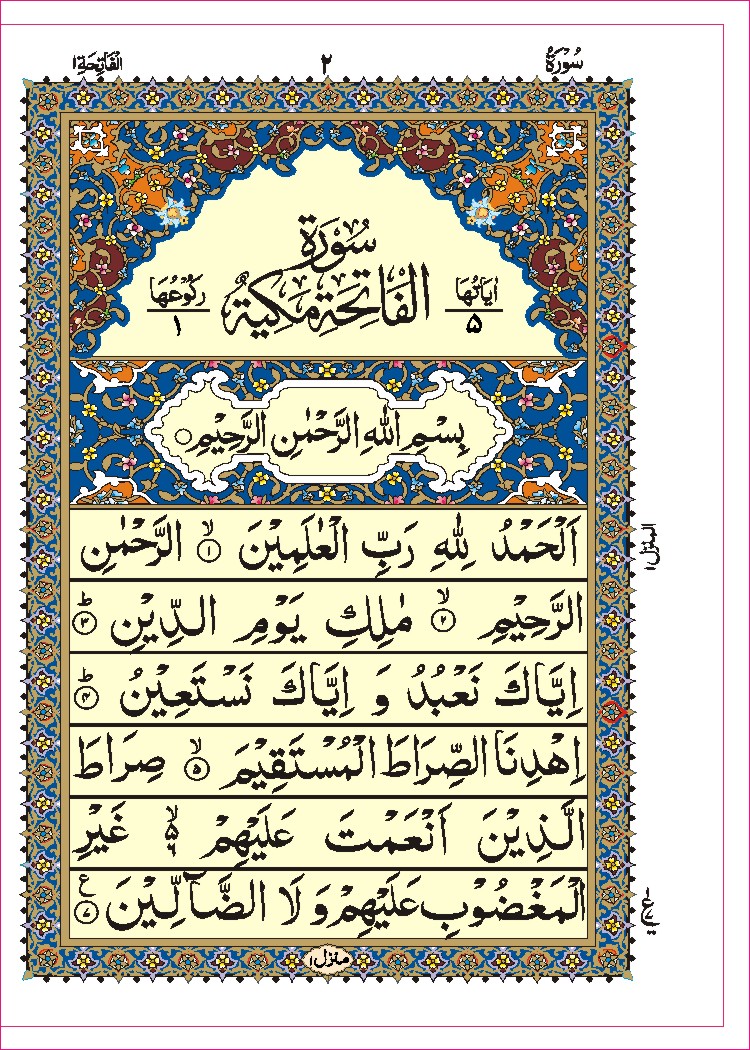 سُوۡرَةُ
٢
الۡفَاتِحَةِ ١
سُوۡرَةُ
اٰيَاتُهَا
٥
الۡفَاتِحَةِ مَكِّيَّةٌ
رُكُوۡعُهَا
١
بِسۡمِ اللّٰهِ الرَّحۡمٰنِ الرَّحِيۡمِ ۝
اَلۡحَمۡدُ لِلّٰهِ رَبِّ الۡعٰلَمِيۡنَ ۙ﴿١﴾ الرَّحۡمٰنِ
الرَّحِيۡمِ ۙ﴿٢﴾ مٰلِكِ يَوۡمِ الدِّيۡنِ ؕ﴿٣﴾
اِيَّاكَ نَعۡبُدُ وَ اِيَّاكَ نَسۡتَعِيۡنُ ؕ﴿٤﴾
اِهۡدِنَا الصِّرَاطَ الۡمُسۡتَقِيۡمَ ۙ﴿٥﴾ صِرَاطَ
الَّذِيۡنَ اَنۡعَمۡتَ عَلَيۡهِمۡ ۙ۬ۦ ٦ غَيۡرِ
الۡمَغۡضُوۡبِ عَلَيۡهِمۡ وَ لَا الضَّآلِّيۡنَ ع﴿٧﴾
المنزل ١
منزل ١